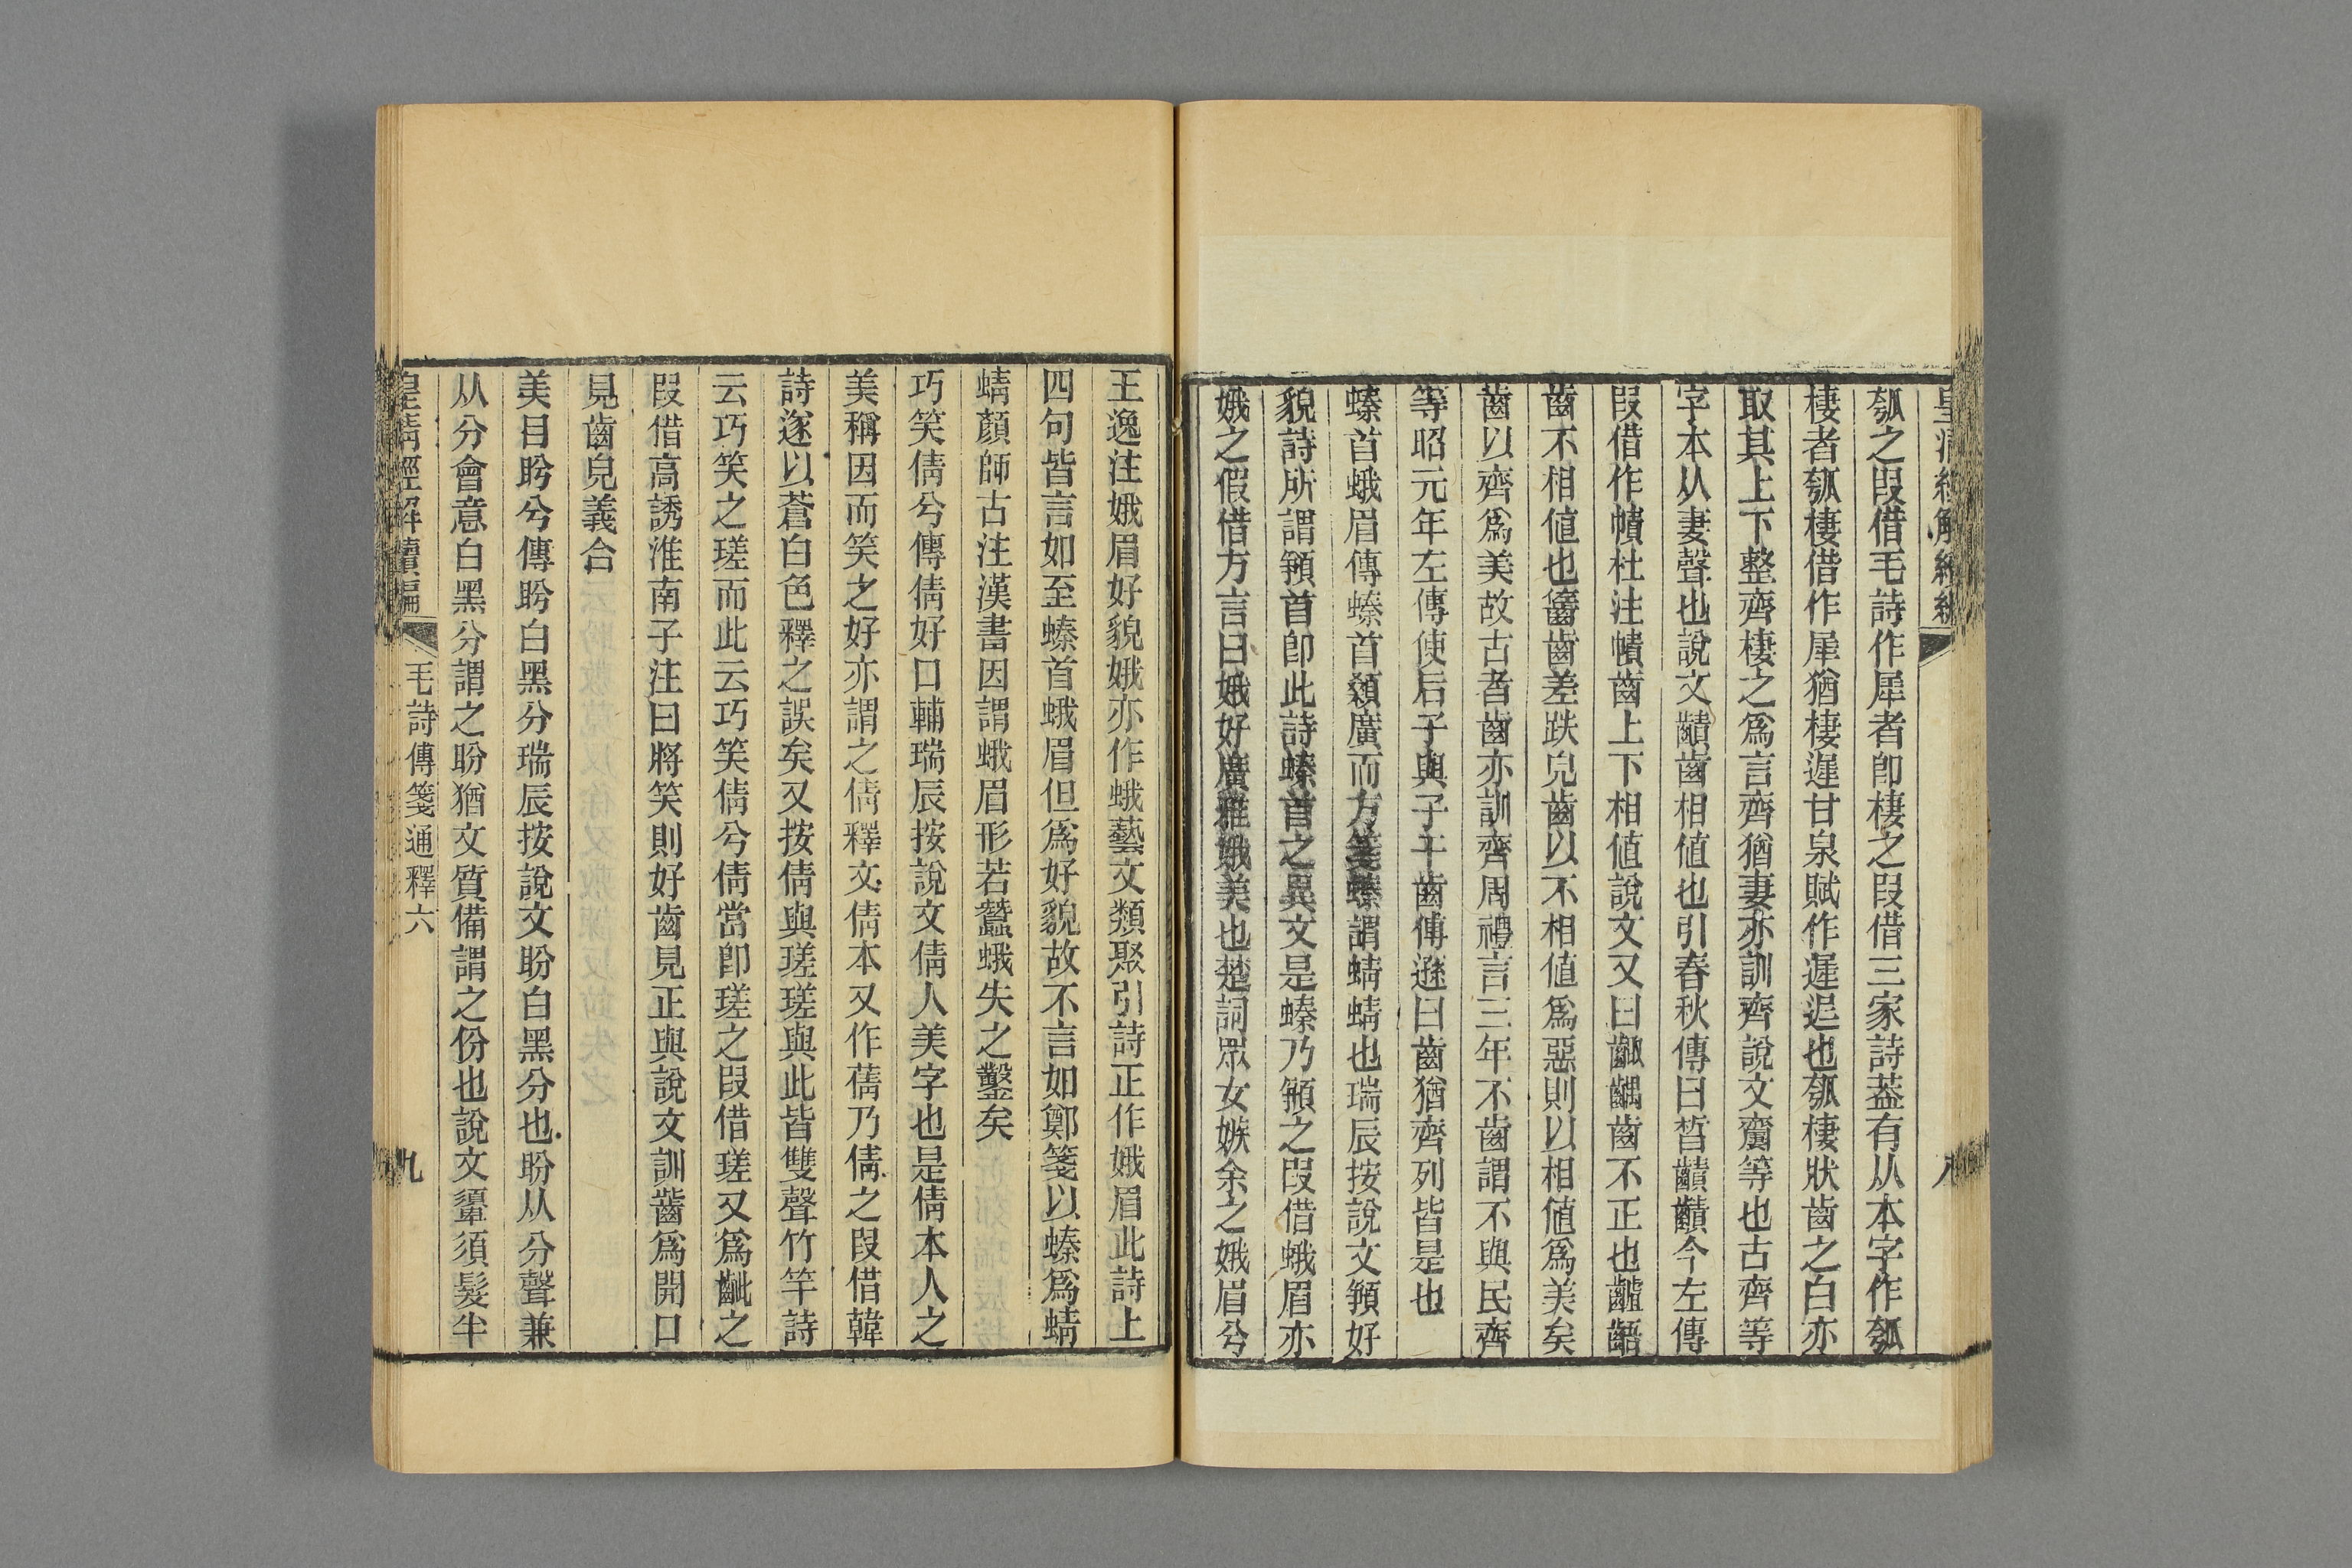 皇清經解續編
八
瓠之叚借毛詩作犀者即棲之叚借三家詩葢有从本字作瓠
棲者瓠棲借作犀猶棲遲甘泉賦作遲迟也瓠棲狀齒之白亦
取其上下整齊棲之爲言齊猶妻亦訓齊說文齌等也古齊等
字本从妻聲也說文齰齒相值也引春秋傳曰晳齰今左傳
叚借作幘杜注幘齒上下相値說文又曰齱齵齒不正也齟齬
齒不相値也齹齒差跌皃齒以不相値爲惡則以相値爲美矣
齒以齊爲美故古者齒亦訓齊周禮言三年不齒謂不與民齊
等昭元年左傳使后子與子干齒傳遜曰齒猶齊列皆是也
螓首蛾眉傳螓首顙廣而方箋螓謂蜻蜻也瑞辰按說文䫖好
貌詩所謂䫖首即此詩螓首之異文是螓乃䫖之叚借蛾眉亦
娥之假借方言曰娥好廣雅娥美也楚詞眾女嫉余之娥眉兮
王逸注娥眉好貌娥亦作蛾藝文類聚引詩正作娥眉此詩上
四句皆言如至螓首蛾眉但爲好貌故不言如鄭箋以螓爲蜻
蜻顏師古注漢書因謂蛾眉形若蠶蛾失之鑿矣
巧笑倩兮傳倩好口輔瑞辰按說文倩人美字也是倩本人之
美稱因而笑之好亦謂之倩釋文倩本又作蒨乃倩之叚借韓
詩遂以蒼白色釋之誤矣又按倩與瑳瑳與此皆雙聲竹竿詩
云巧笑之瑳而此云巧笑倩兮倩當即瑳之叚借瑳又爲齜之
叚借高誘淮南子注曰將笑則好齒見正與說文訓齜爲開口
見齒皃義合
美目盼兮傳盼白黑分瑞辰按說文盼白黑分也盼从分聲兼
从分會意白黑分謂之盼猶文質備謂之份也說文䰐須髮半
皇清經解續編
毛詩傳箋通釋六
九